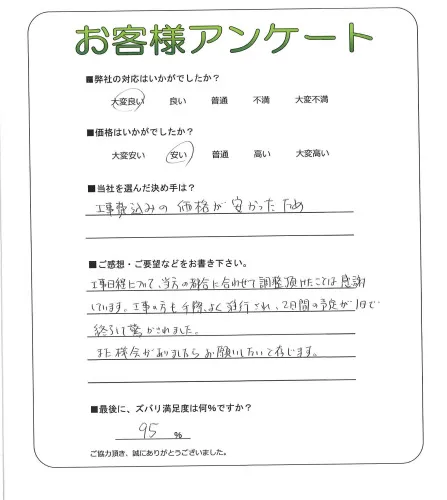 お客様アンケート
■弊社の対応はいかがでしたか?
大変良い 良い 普通 不満 大変不満
■価格はいかがでしたか?
大変安い 安い 普通 高い 大変高い
■当社を選んだ決め手は?
工事費込みの価格が安かったため
■ご感想・ご要望などをお書き下さい。
工事日程について、当方の都合に合わせて調整頂けたことは感謝
しています。工事の方も手際よく進行され、2日間の予定が1日で
終了して驚かされました。
また機会がありましたらお願いしたいと存じます。
■最後に、ズバリ満足度は何%ですか?
95 %
ご協力頂き、誠にありがとうございました。